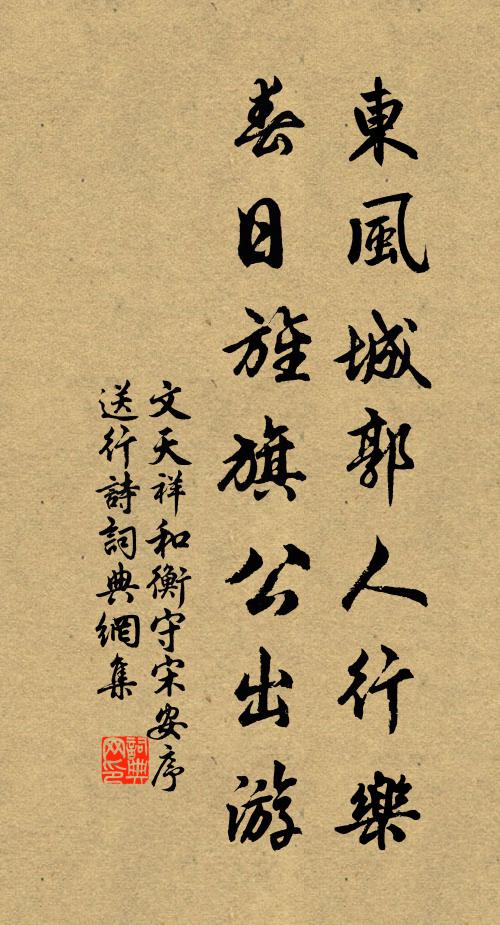 東風城郭人行樂
春日旌旗公出游
文天祥和衡守宋安序
送行詩詞典網集
詞典
网印